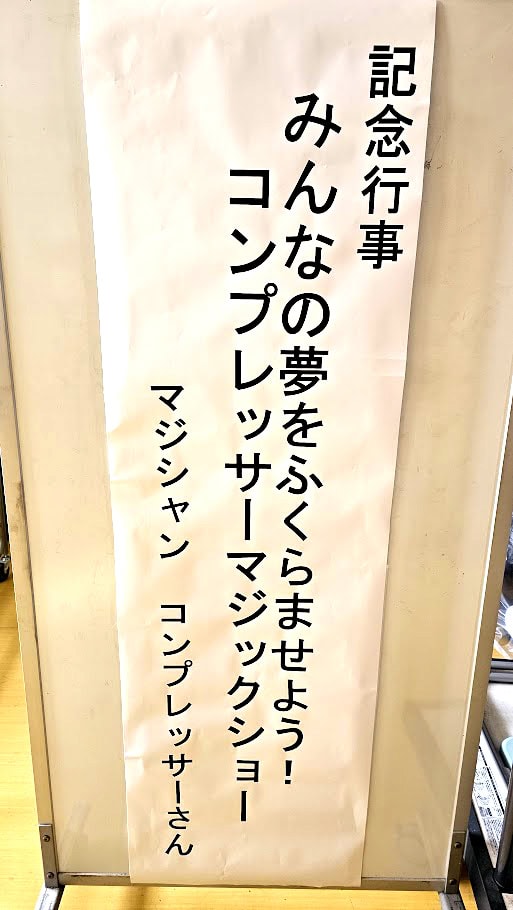 記念行事
みんなの夢をふくらませよう！
コンプレッサーマジックショー
マジシャン　コンプレッサーさん